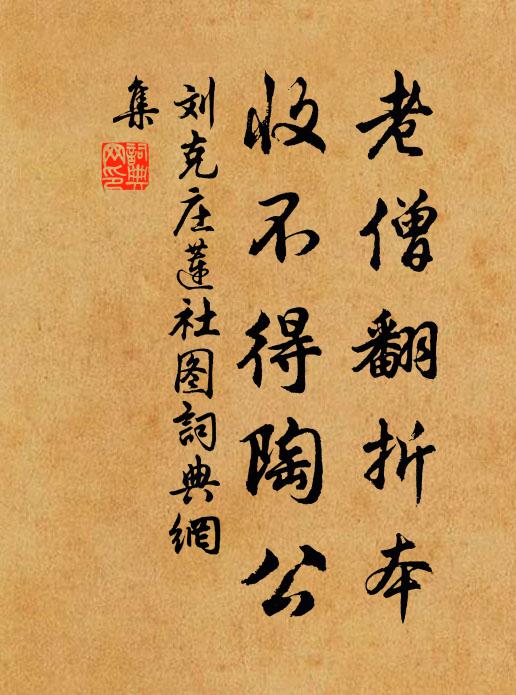 老僧翻折本
收不得陶公
刘克庄蓮社图詞典網
集
詞典網印